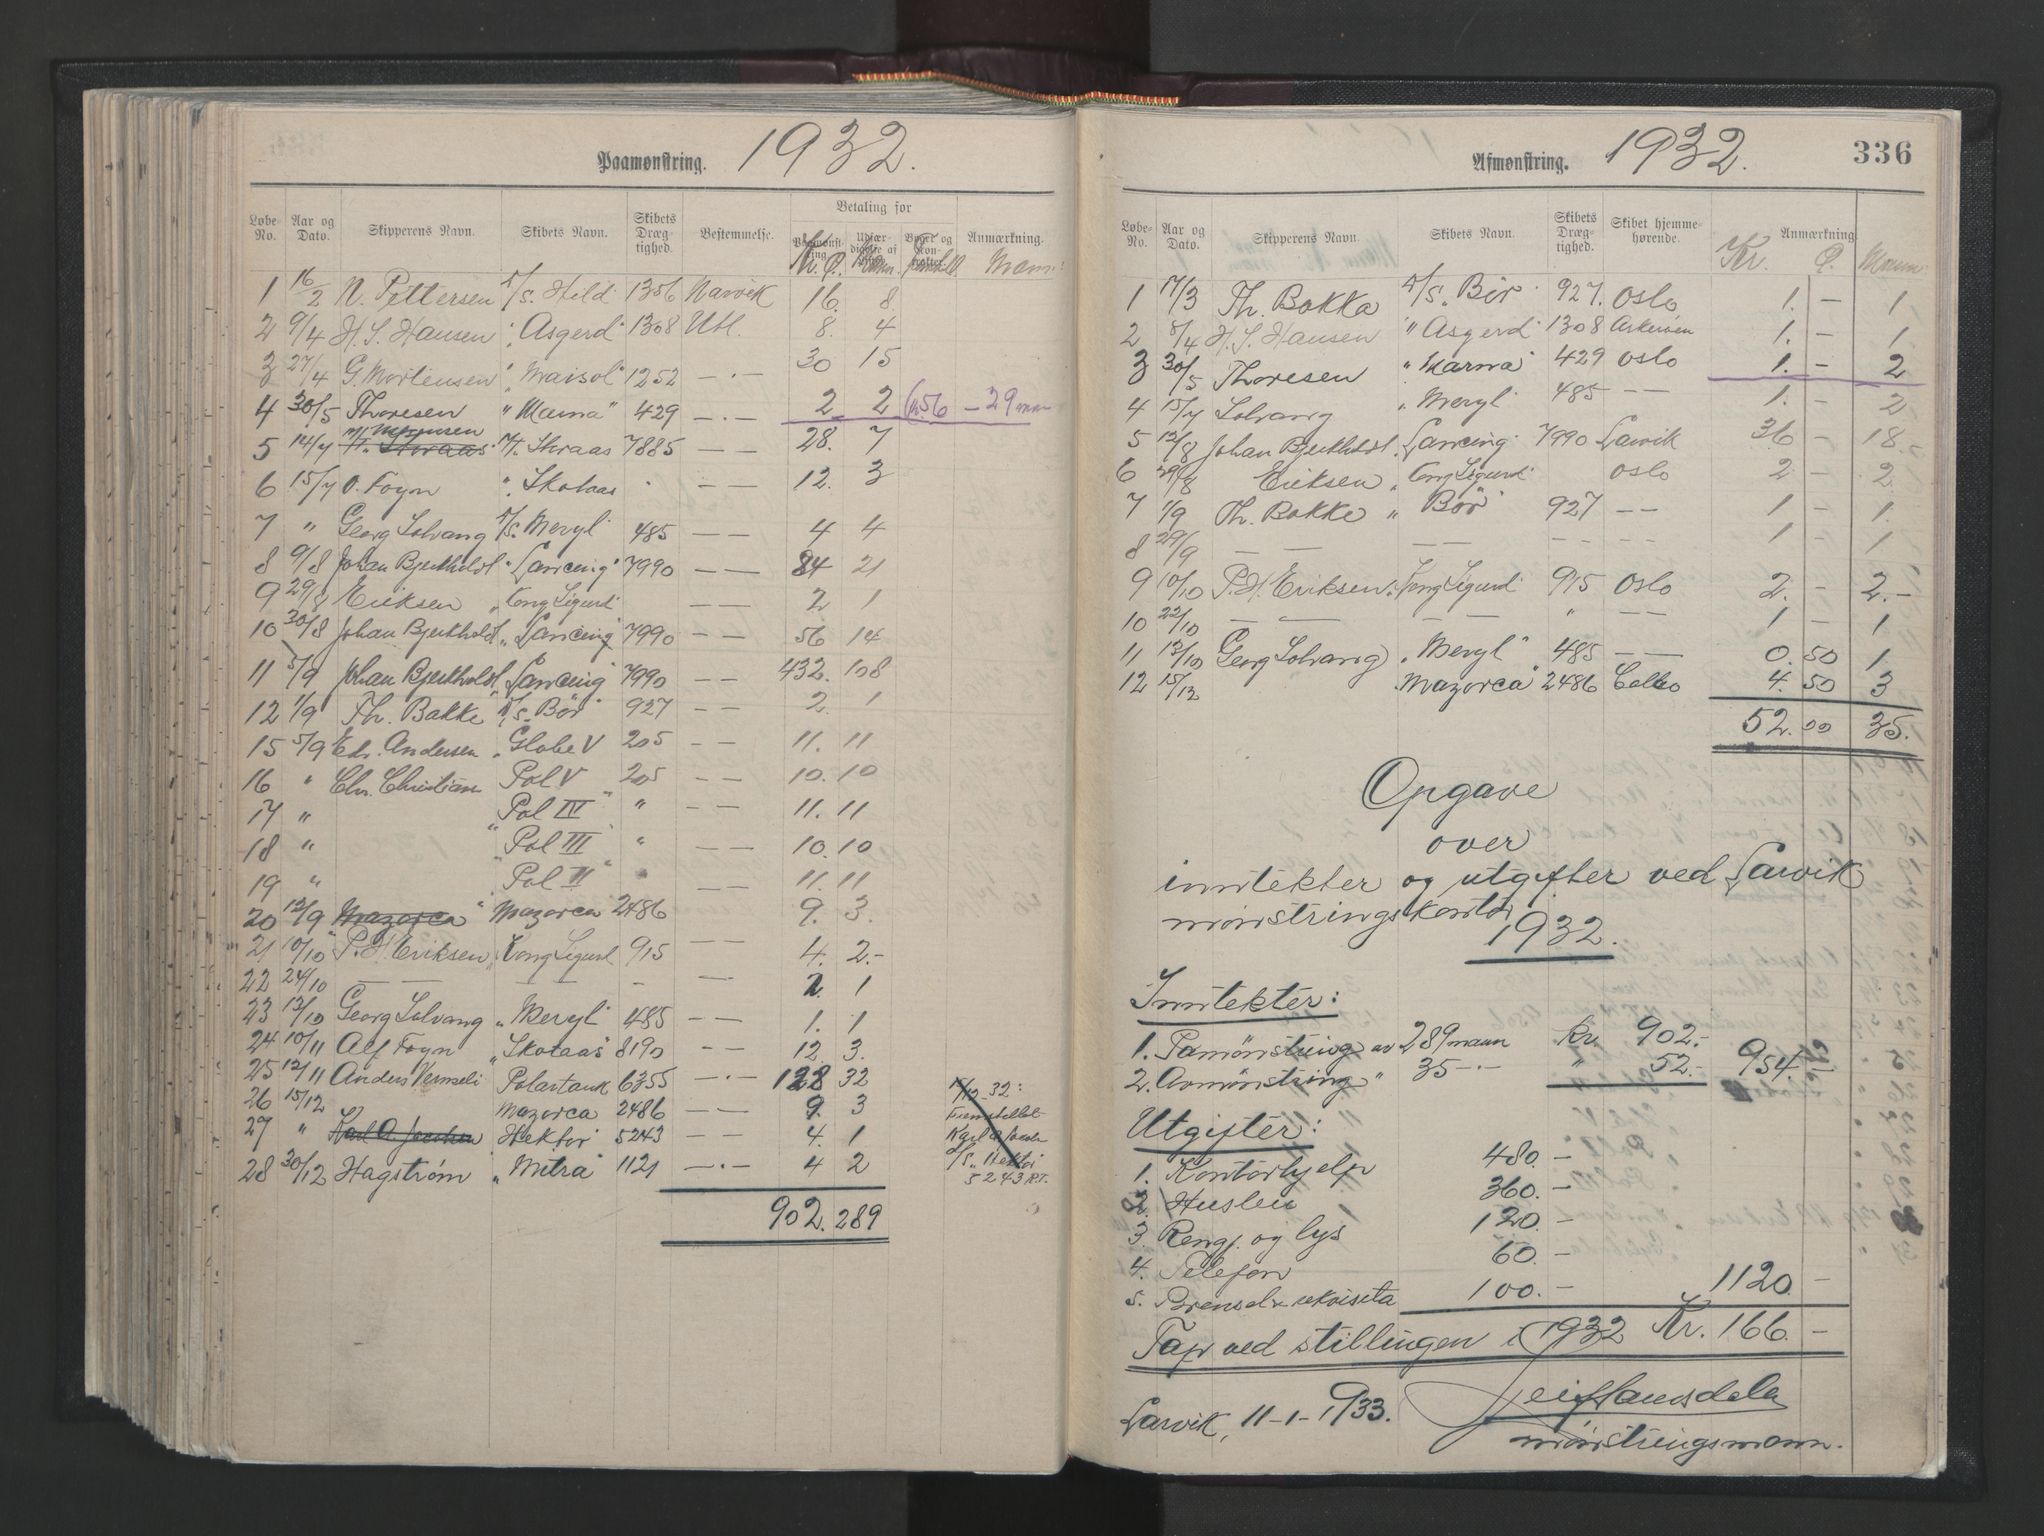 Paamønstring. 1932.
Løbe-No. Aar og Dato. Skipperens Navn. Skibets Navn. Skibets Dræg-tighed. Bestemmelse. Betaling for Anmærkning.
Kr. Ø. Mann.
1 16/2 N. Pettersen S/S. Hild 1356 Narvik 16. 8
2 9/4 H. S. Hansen " Asgerd" 1308 Utl. 8. 4
3 27/4 G. Mortensen " Maisol" 1252 — . — 30 15
4 30/5 Thoresen " Karma" 429 — . — 2 2 Kr. 56 — 29 mann
5 14/7 M/T. Skraas 7885 — — 28. 7
6 15/7 O. Foyn ". Skotaas " — — 12. 3
7 " Georg Solvang S/S. Meryl 485 — — 4 4
8 9/8 Johan Bjerkholdt "Lancing" 7990 — — 84 21
9 29/8 Eriksen " Kong Sigurd — — 2 1
10 30/8 Johan Bjerkholdt " Lancing 7990 — — 56 14
11 5/9 Johan Bjerkholdt " Lancing 7990 — — 432. 108
12 1/9 Th. Bakke S/S. Bør" 927 — — 2. 1
15 5/9 Edv. Andersen " Globe V 205 — — 11. 11
16 " Chr. Christian Pol V 205 — — 10. 10
17 " " Pol IV " " — — 11. 11
18 " " Pol III " — — 10. 10
19 " " Pol II " " — — 11. 11
20 12/9 Mazorca " Mazorca 2486 — — 9. 3.
21 10/10 P. H. Eriksen " Kong Sigurd 915 — — 4. 2.-
22 24/10 — — — — — — 2. 1
23 12/10 Georg Solvang " Meryl" 485 — — 1. 1
24 10/11 Alf Foyn " Skotaas" 8190 — — 12. 3.
25 12/11 Anders Vermeli Polartank 6355 — . — 128 32
26 15/12 Mazorca 2486 9. 3
27 " Karl A. Jacobsen Hektor 5243 4. 1
28 30/12 Hagstrøm " Mitra" 1121 — . — 4 2
15/12-32:
Fremstillet
Karl A. Jacobs
S/S "Hektor"
5243 R.T.
902. 289
Afmønstring. 1932. 336
Løbe-No. Aar og Dato. Skipperens Navn. Skibets Navn. Skibets Dræg-tighed. Skibet hjemme-hørende. Anmærkning
Kr. Ø. Mann.
1 17/3 Th. Bakka S/S. Bør 927. Oslo 1. — 1
2 8/4 H. S. Hansen " Asgerd 1308 1. — 1.
3 30/5 Thoresen " Karma" 429 Oslo 1. — 2
4 15/7 Solvang " Meryl. 485 — — 1. — 2
5 12/8 Johan Bjerkholdt. Lancing. 7990 Larvik 36 — 18.
6 29/8 Eriksen " Kong Sigurd Oslo 2 — 2.
7 1/9 Th. Bakke " Bør 927 — — 1 — 1.
8 29/9 — — — — — — — 1 — 1
9 10/10 P. H. Eriksen " Kong Sigurd 915 Oslo 2. — 2.-
10 22/10 — — — — " — — 1 — 1
11 12/10 Georg Solvang " Meryl" 485 — — 0. 50 1.
12 15/12 " Mazorca" 2486 4. 50 3
52.00 35.
Opgave
over
inntekter og utgifter ved Larvik
mønstringskontor
1932.
Inntekter:
1. Pamønstring av 289 mann Kr. 902.-
2. Avmønstring " 35 — . — " 52.- 954. —
Utgifter:
1. Kontorhjelp 480. —
2. Husleie 360. —
3. Rengj. og lys 120. —
4. Telefon 60. —
5. Brensel & rekvisita 100. — 1120 —
Tap ved stillingen i 1932 Kr. 166. —
Larvik, 11-1-1933.
mønstringsmann.